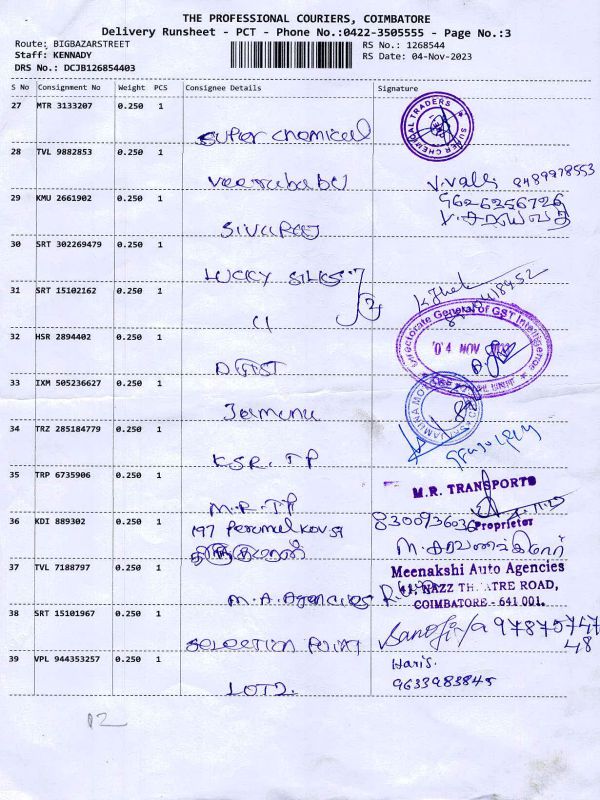 THE PROFESSIONAL COURIERS, COIMBATORE
Delivery Runsheet - PCT - Phone No.:0422-3505555 - Page No.:3
Route: BIGBAZARSTREET
RS No.: 1268544
Staff: KENNADY
RS Date: 04-Nov-2023
DRS No.: DCJB126854403
S No Consignment No Weight PCS Consignee Details Signature
27 MTR 3133207 0.250 1
super chemical
SUPER CHEMICAL TRADERS
28 TVL 9882853 0.250 1
Veerababu
V.Valli 8489978553
29 KMU 2661902 0.250 1
9626256726
Sivaraj
30 SRT 302269479 0.250 1
LUCKY SILKS
31 SRT 15102162 0.250 1
Directorate General of GST Intelligence
32 HSR 2894402 0.250 1
04 NOV
DGST
33 IXM 505236627 0.250 1
Jamuna
34 TRZ 285184779 0.250 1
KSR. TP
35 TRP 6735906 0.250 1
M.R. TRANSPORTS
M.R. TP
36 KDI 889302 0.250 1
197 Perumal Kov St
8300936036
Proprietor
37 TVL 7188797 0.250 1
Meenakshi Auto Agencies
NAZZ THEATRE ROAD,
M.A. Agencies
COIMBATORE - 641 001.
38 SRT 15101967 0.250 1
SELECTION POINT
9787574748
39 VPL 944353257 0.250 1
Haris.
9633983845
LOT2.
12